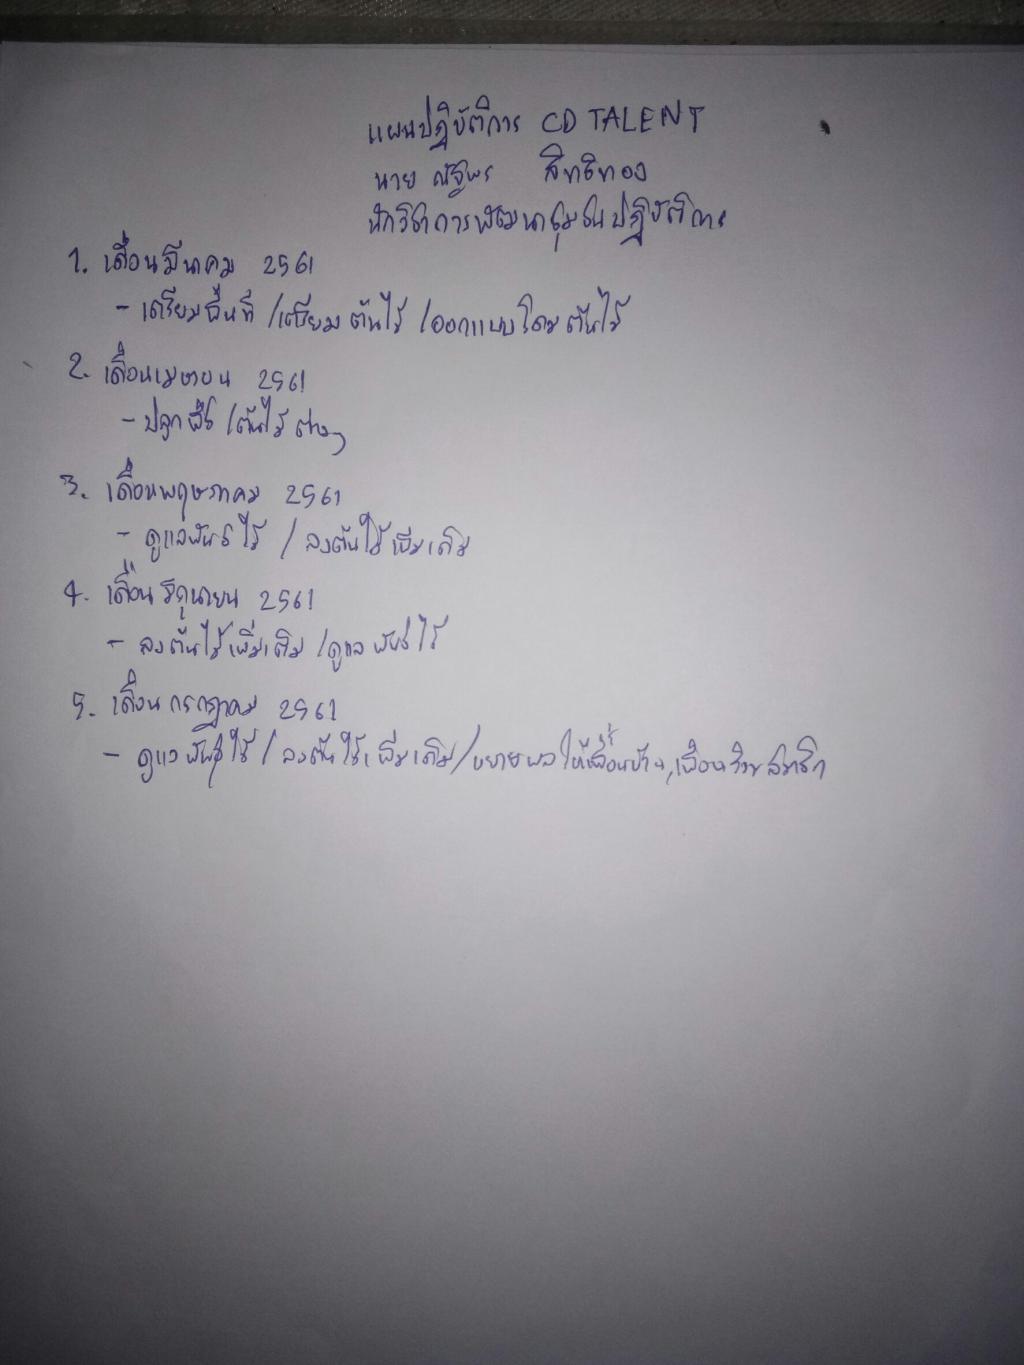 แผนปฏิบัติการ CD TALENT
นาย ณัฐพร สิทธิทอง
นักวิชาการพัฒนาชุมชนปฏิบัติการ
1. เดือนมีนาคม 2561
- เตรียมพื้นที่ /เตรียมต้นไม้ /ออกแบบโดมต้นไม้
2. เดือนเมษายน 2561
- ปลูกพืช /ต้นไม้ต่างๆ
3. เดือนพฤษภาคม 2561
- ดูแลพันธ์ไม้ / ลงต้นไม้เพิ่มเติม
4. เดือนมิถุนายน 2561
- ลงต้นไม้เพิ่มเติม /ดูแลพันธ์ไม้
5. เดือนกรกฎาคม 2561
- ดูแลพันธุ์ไม้ / ลงต้นไม้เพิ่มเติม /ขยายผลให้เพื่อนบ้าน, เพื่อนร่วมสมาชิก